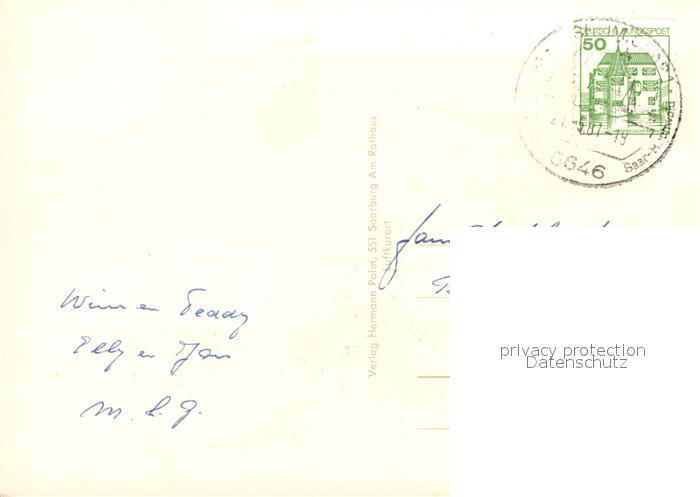 DEUTSCHE BUNDESPOST
50
21.
81-19
6646
Saar-Hochwald
Verlag Hermann Palm, 551 Saarburg Am Rathaus
Luftkurort
Fam
Wim en Teddy
Elly en Jan
m. h. g.
privacy protection
Datenschutz